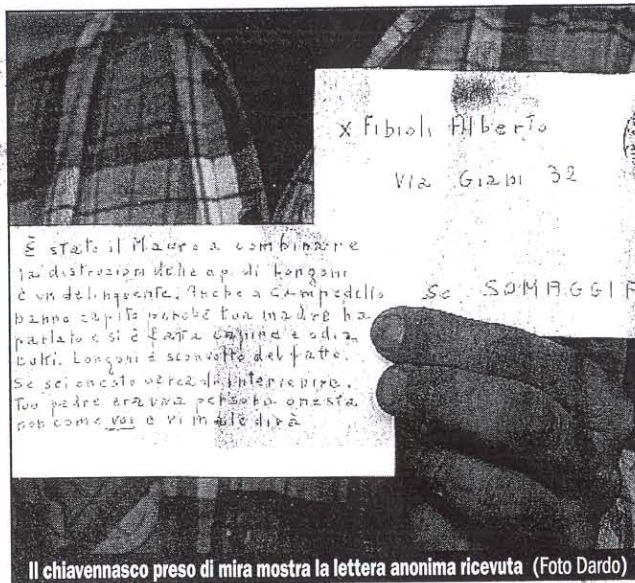 x Fibioli Alberto
Via Giani 32
So SOMAGGIA
È stato il Mauro a combinare
la distruzioni delle api di Longoni
è un delinquente. Anche a Campedello
hanno capito perché tua madre ha
parlato e si è fatta capire e odia
tutti. Longoni è sconvolto del fatto.
Se sei onesto cerca di intervenire.
Tuo padre era una persona onesta
non come voi e vi maledirà
Il chiavennasco preso di mira mostra la lettera anonima ricevuta (Foto Dardo)